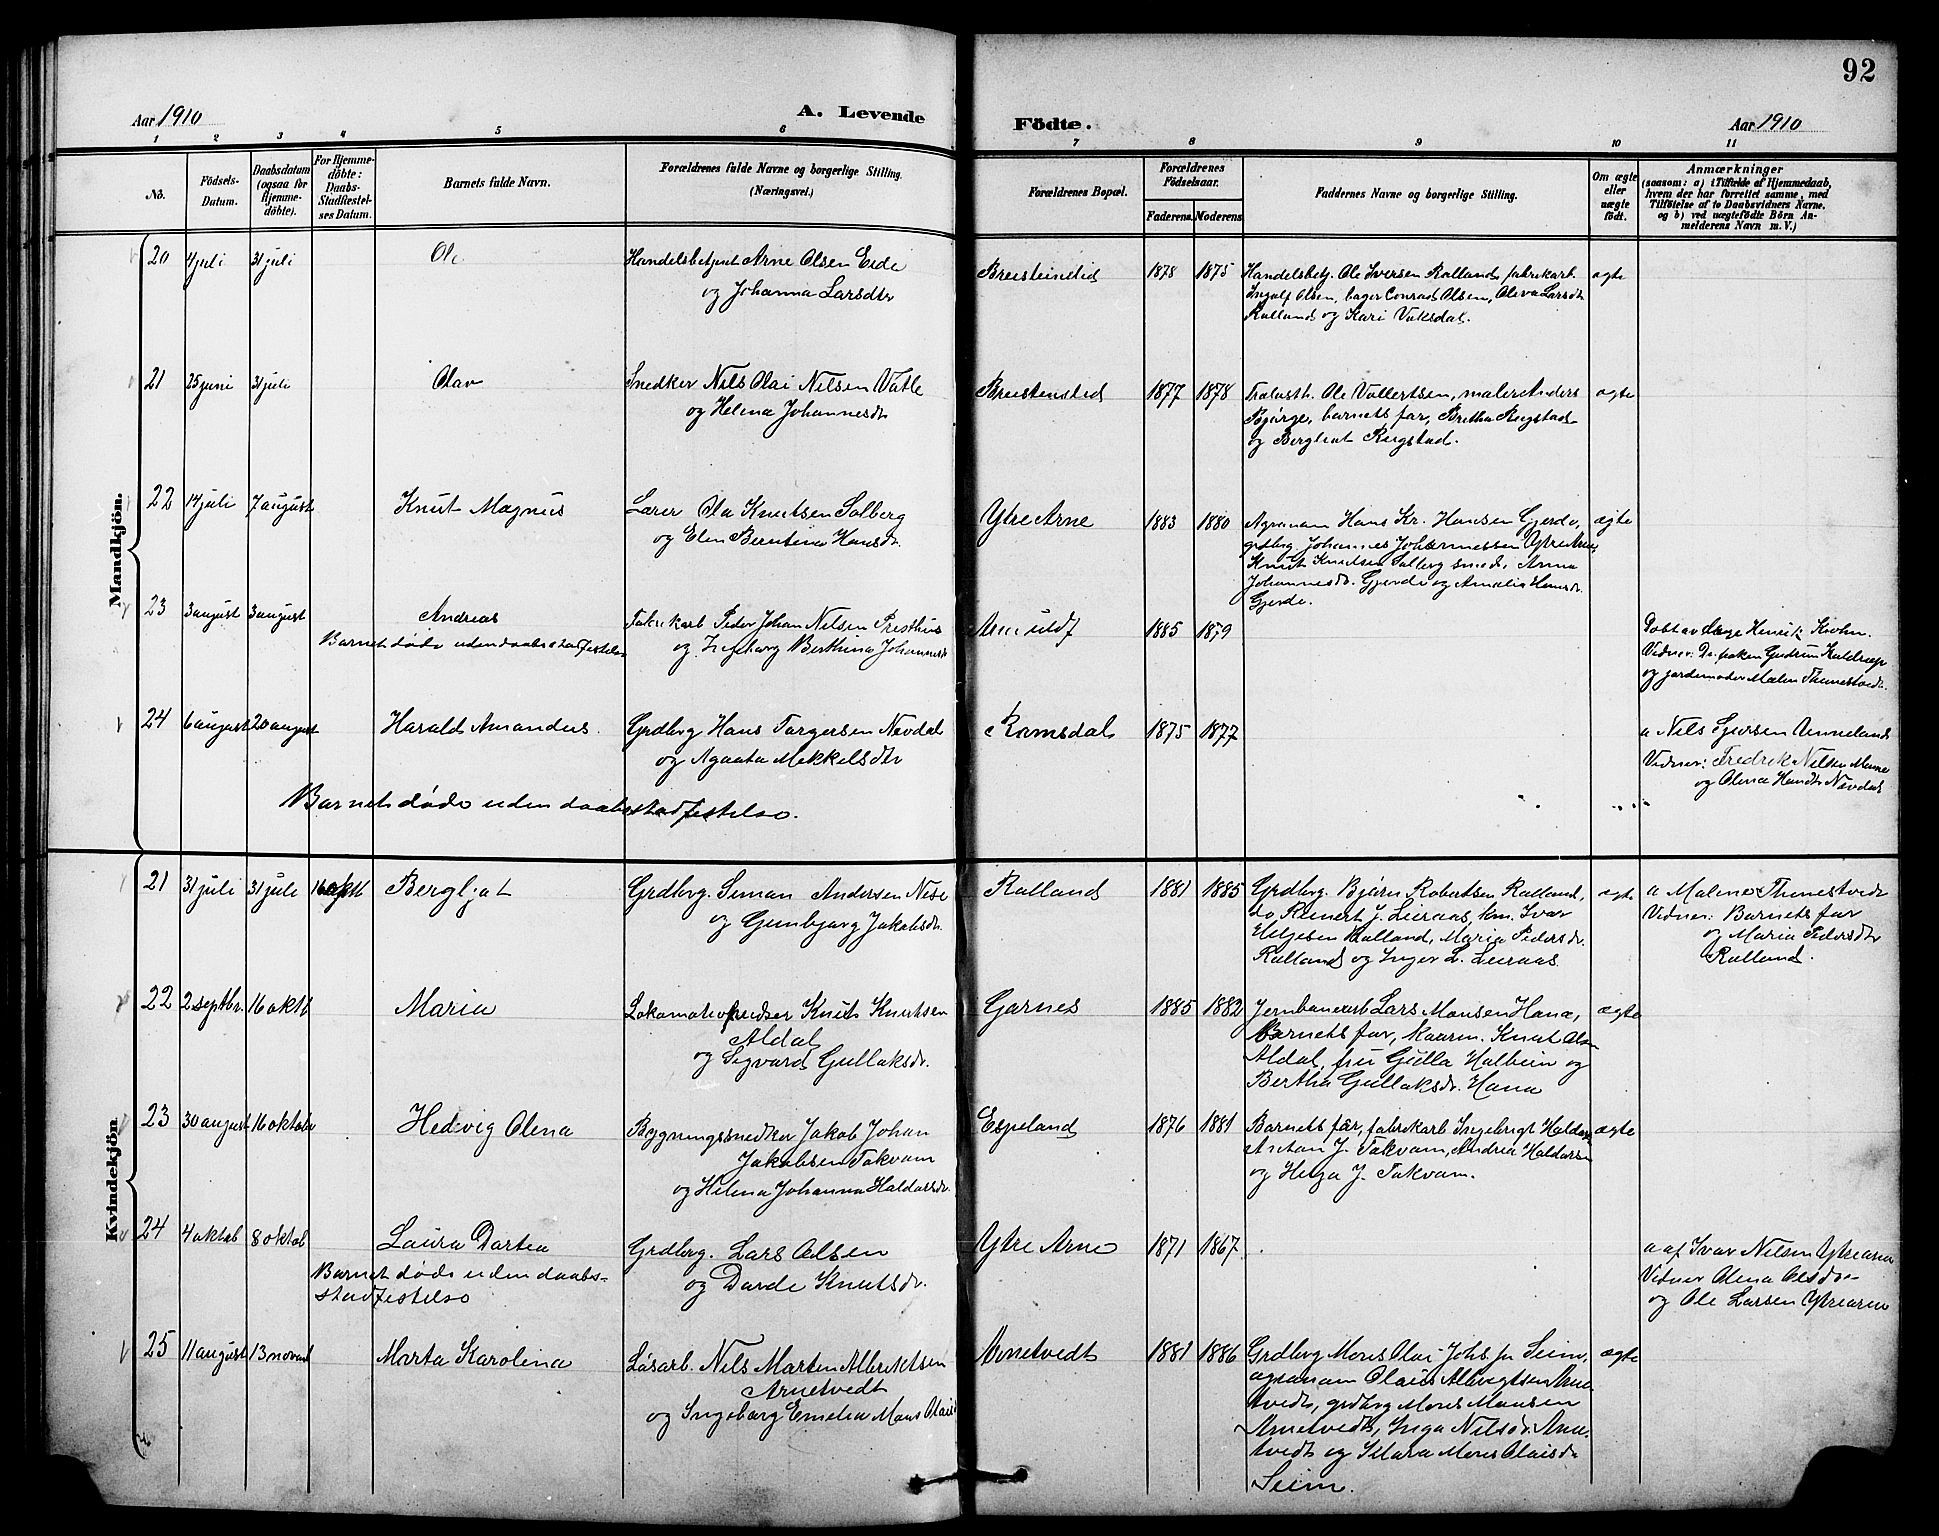 92
Aar 1910
A. Levende
Födte.
Aar 1910
1 2 3 4 5 6 7 8 9 10 11
No.
Födsels-
Datum.
Daabsdatum
(ogsaa for
Hjemme-
döbte).
For Hjemme-
döbte:
Daabs-
Stadfæstel-
ses Datum.
Barnets fulde Navn.
Forældrenes fulde Navne og borgerlige Stilling.
(Næringsvei.)
Forældrenes Bopæl.
Forældrenes
Födselsaar.
Faderens. Moderens.
Faddernes Navne og borgerlige Stilling.
Om ægte
eller
uægte
födt.
Anmærkninger
(saasom: a) i Tilfælde af Hjemmedaab,
hvem der har forrettet samme, med
Tilföielse af to Daabsvidners Navne,
og b) ved uægtefödte Börn An-
melderens Navn m. V.)
Mandkjön.
20 4 juli 31 juli
Ole
Handelsbetjent Arne Olsen Eide
og Johanna Larsdtr
Breisteinslid
1878 1875
Handelsbetj. Ole Iversen Rolland, fabrikarb.
Ingolf Olsen, bager Conrad Olsen, Oleva Larsdt
Rolland og Kari Vaksdal.
ægte
21 25 juni 31 juli
Olav
Snedker Nils Olai Nilsen Vatle
og Helena Johannesdt
Breistenslid
1877 1878
Ole Vallertsen, maler Anders
Bjørge, barnets far, Britha Rugstad
og Bergliot Rugstad.
ægte
22 14 juli 7 august
Knut Magnus
Lærer Ola Knutsen Solberg
og Elen Berntina Hansdr.
Ytre Arne
1883 1880
Agronom Hans Kr. Hansen Gjerde,
grdbrg Johannes Johannessen Ytre Arne,
Knut Knutsen Solberg smed, Anna
Johannesdr. Gjerde og Amalia Hansdr.
Gjerde.
ægte
23 3 august 3 august
Andreas
Barnet døde uden daabsstadfestelse
Fabrikarb Peder Johan Nilsen Presthus
og Ingeborg Berthina Johannesdt
Arne uldf
1885 1879
Døbt av læge Henrik Krohn.
Vidner: Gudrun Kaldrup
og jordemoder Malen Thunestvedt.
24 6 august 20 august
Harald Amandus.
Grdbrg Hans Torgersen Navdal
og Agaata Mikkelsdtr
Barnet døde uden daabsstadfestelse.
Romsdal
1875 1877
a Nils Sjursen Unneland
Vidner: Fredrik Nilsen
og Olena Hansdt Navdal
Kvindekjön
21 31 juli 31 juli 16 oktb
Bergljot
Grdbrg. Simon Andersen Nese
og Gunbjørg Jakobsdr.
Rolland
1881 1885
Grdbrg. Bjørn Robertsen Rolland,
do, Reinert J. Leiraas, km. Ivar
Helgesen Rolland, Maria Pedersdr.
Rolland og Inger L. Leiraas.
ægte
a Malene Thunestvedt
Vidner: Barnets far
og Maria Pedersdtr
Rolland.
22 2 septbr. 16 oktb
Maria
Lokomotivpudser Knut Knutsen
Aldal
og Sigvard Gullaksdr.
Garnes
1885 1882
Jernbanearb Lars Monsen Hana,
Barnets far, Knut Olsen
Aldal, fru Gulla Halbein og
Bertha Gullaksdr. Hana
ægte
23 30 august 16 oktober
Hedvig Olena
Bygningssnedker Jakob Johan
Jakobsen Takvam
og Helena Johanna Haldorsdr.
Espeland
1876 1881
Barnets far, fabrikarb Ingebrigt Haldorsen
Anton J. Takvam, Andrea Haldorsen
og Helga J. Takvam.
ægte
24 4 oktob 8 oktob
Laura Dortea
Barnet døde uden daabs-
stadfestelse
Grdbrg. Lars Olsen
og Dorde Knutsdr.
Ytre Arne
1871 1867
a af Ivar Nilsen Ytrearne
Vidner Olena Olsdr
og Ole Larsen Ytrearne
25 11 august 13 novemb
Marta Karolina
Løsarb. Nils Marten Albriktsen
Arnetvedt
og Ingeborg Emelia Mons Olaisd
Arnetvedt
1881 1886
Grdbrg Mons Olai Johs.sn Seim,
agronom Olais Albrigtsen Arne
tvedt, grdbrg Mons Monsen
Arnetvedt, Inga Nilsdr. Arne
tvedt og Klara Mons Olaisdr
Seim.
ægte